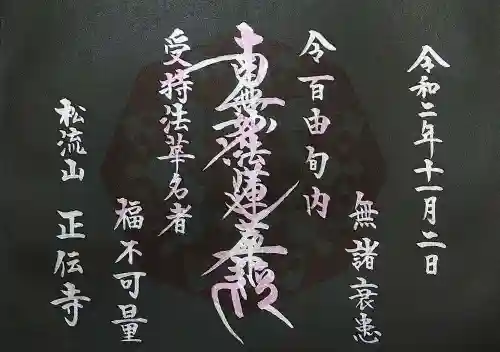 令和二年十一月二日
無諸衰患
令百由旬内
南無妙法蓮華経
受持法華名者
福不可量
松流山 正伝寺